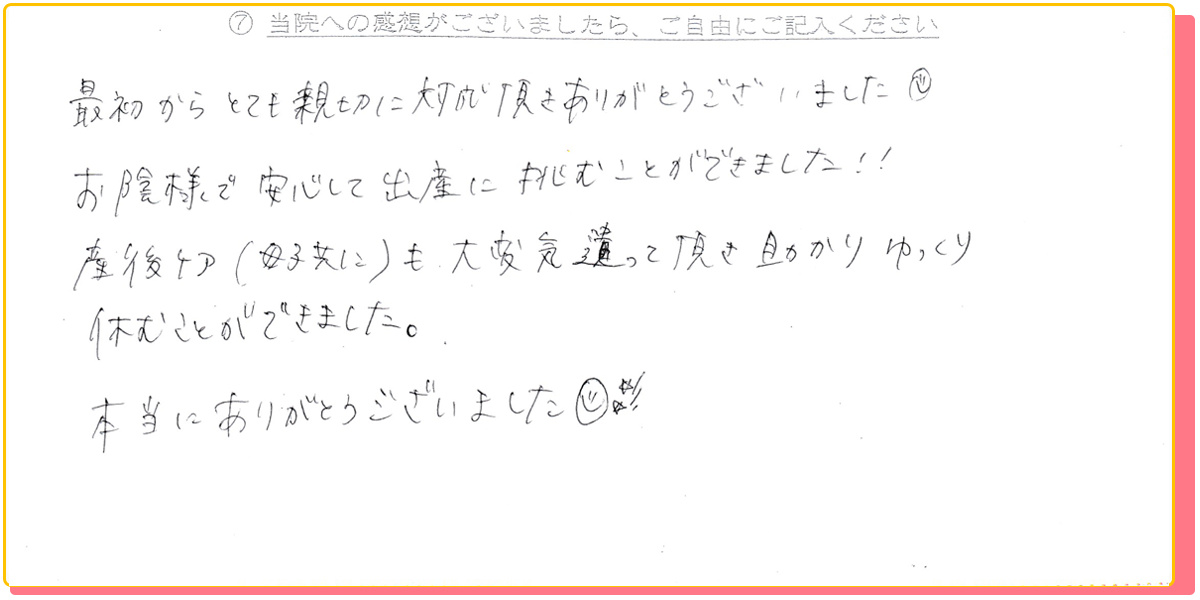 ⑦ 当院への感想がございましたら、ご自由にご記入ください
最初からとても親切に対応頂きありがとうございました
お陰様で安心して出産に挑むことができました!!
産後ケア(母子共に)も大変気遣って頂き助かりゆっくり
休むことができました。
本当にありがとうございました